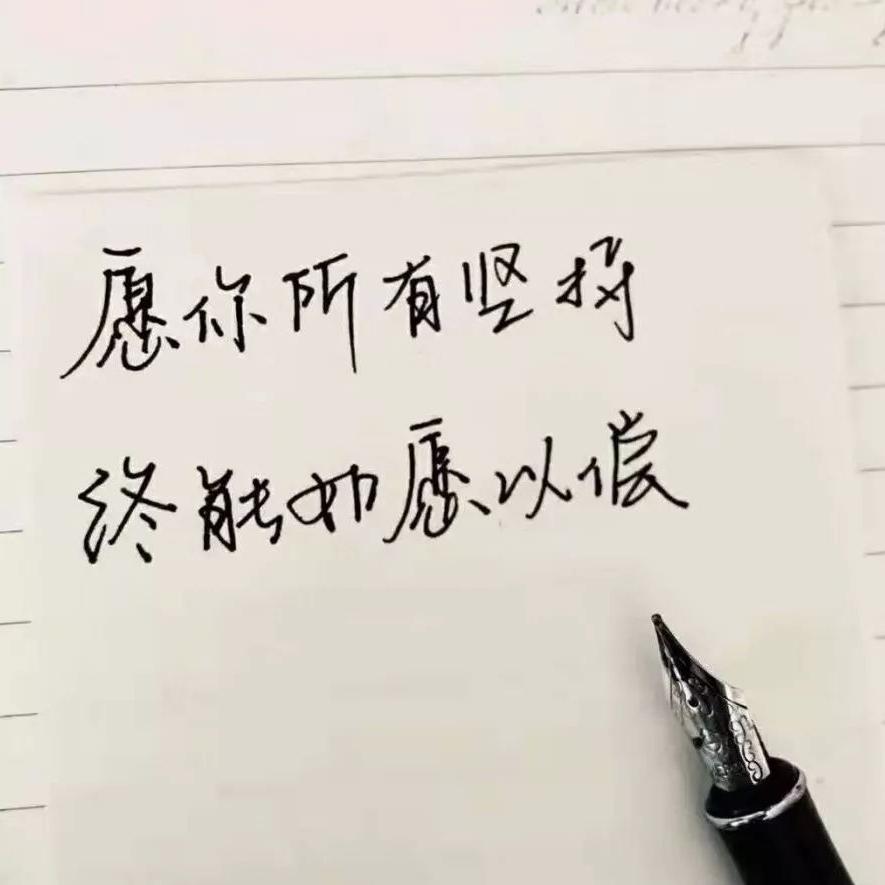 愿你所有坚持
终能如愿以偿